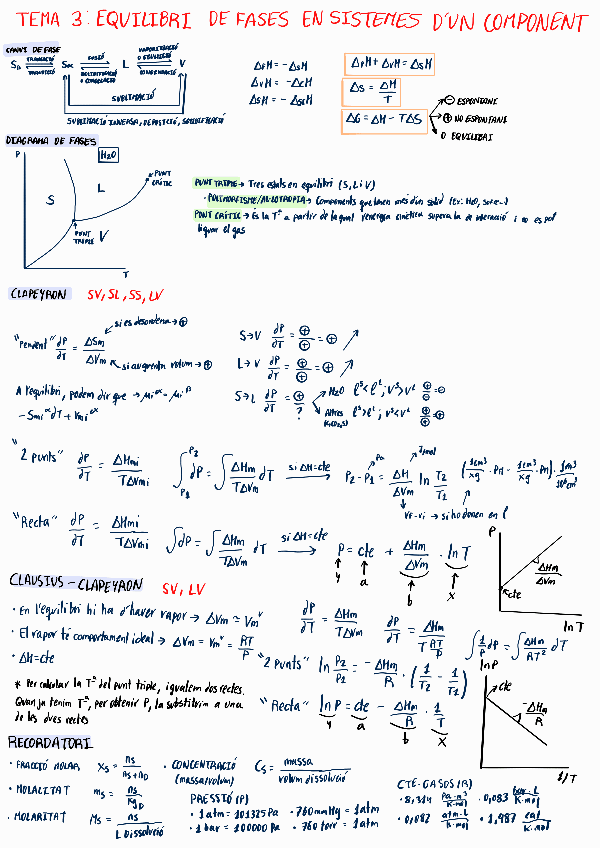 TEMA 3: EQUILIBRI DE FASES EN SISTEMES D'UN COMPONENT
CANVI DE FASE
FUSIÓ
VAPORITZACIÓ O EBULLICIÓ
L
V
CONDENSACIÓ
SUBLIMACIÓ
SUBLIMACIÓ INVERSA, DEPOSICIÓ,
ΔfH = -ΔsH
ΔvH = -ΔcH
ΔfH + ΔvH = ΔsH
ΔS = ΔH/T
ΔG = ΔH - TΔS
⊖ ESPONTANI
⊕ NO ESPONTANI
O EQUILIBRI
DIAGRAMA DE FASES
P
H2O
S
L
V
T
PUNT CRÍTIC
PUNT TRIPLE
PUNT TRIPLE → Tres estats en equilibri (S, L i V)
· POLIMORFISME/AL·LOTROPIA → Components que tenen més d'un sòlid
PUNT CRÍTIC → És la Tª a partir de la qual l'energia cinètica supera la de interacció i no es pot
liquar el gas
CLAPEYRON SV, SL, SS, LV
"Pendent" dP/dT = ΔSm/ΔVm
si es desordena → ⊕
si augmenta volum → ⊕
S→V dP/dT = ⊕/⊕ = ⊕
L→V dP/dT = ⊕/⊕ = ⊕
S→L dP/dT = ⊕/?
H2O ρS<ρL ; VS>VL ⊕/⊖ = ⊖
Altres ρS>ρL ; VS<VL ⊕/⊕ = ⊕
A l'equilibri, podem dir que → μiα = μiβ
"2 punts" dP/dT = ΔHmi/TΔVmi
∫dP = ∫ΔHm/TΔVm dT
si ΔH=cte
P2 - P1 = ΔH/ΔVm ln T2/T1
Pa
J/mol
Vf-Vi → si ho donen en ρ
"Recta" dP/dT = ΔHmi/TΔVmi
∫dP = ∫ΔHm/TΔVm dT
si ΔH=cte
P = cte + ΔHm/ΔVm · ln T
y a b x
P
ΔHm/ΔVm
cte
ln T
CLAUSIUS-CLAPEYRON SV, LV
· En l'equilibri hi ha d'haver vapor → ΔVm ≃ Vmv
· El vapor té comportament ideal → ΔVm = Vmv = RT/P
· ΔH=cte
dP/dT = ΔHm/TΔVm
dP/dT = ΔHm/T RT/P
∫1/P dP = ∫ΔHm/RT² dT
"2 punts" ln P2/P1 = -ΔHm/R · (1/T2 - 1/T1)
* Per calcular la Tª del punt triple, igualem dos rectes.
Quan ja tenim Tª, per obtenir P, la substituïm a una
de les dues rectes
"Recta" ln P = cte - ΔHm/R · 1/T
y a b x
ln P
cte
-ΔHm/R
1/T
RECORDATORI
· FRACCIÓ MOLAR Xs = ns/ns+nD
· MOLALITAT ms = ns/kgD
· MOLARITAT Ms = ns/L Dissolució
· CONCENTRACIÓ (massa/volum) Cs = massa/volum dissolució
PRESSIÓ (P)
· 1 atm = 101325 Pa · 760 mmHg = 1 atm
· 1 bar = 100000 Pa · 760 torr = 1 atm
CTE-GASOS (R)
· 8,314 Pa·m³/K·mol · 0,083 bar·L/K·mol
· 0,082 atm·L/K·mol · 1,987 cal/K·mol